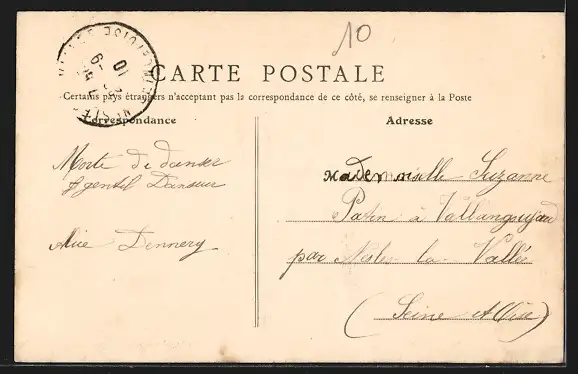 10
CARTE POSTALE
Certains pays étrangers n'acceptant pas la correspondance de ce côté, se renseigner à la Poste
Correspondance
Adresse
Morte de danser
gentil Danseur
Alice Dennery
Mademoiselle Suzanne
à Vallangoujard
par Nesles la Vallée
(Seine et Oise)